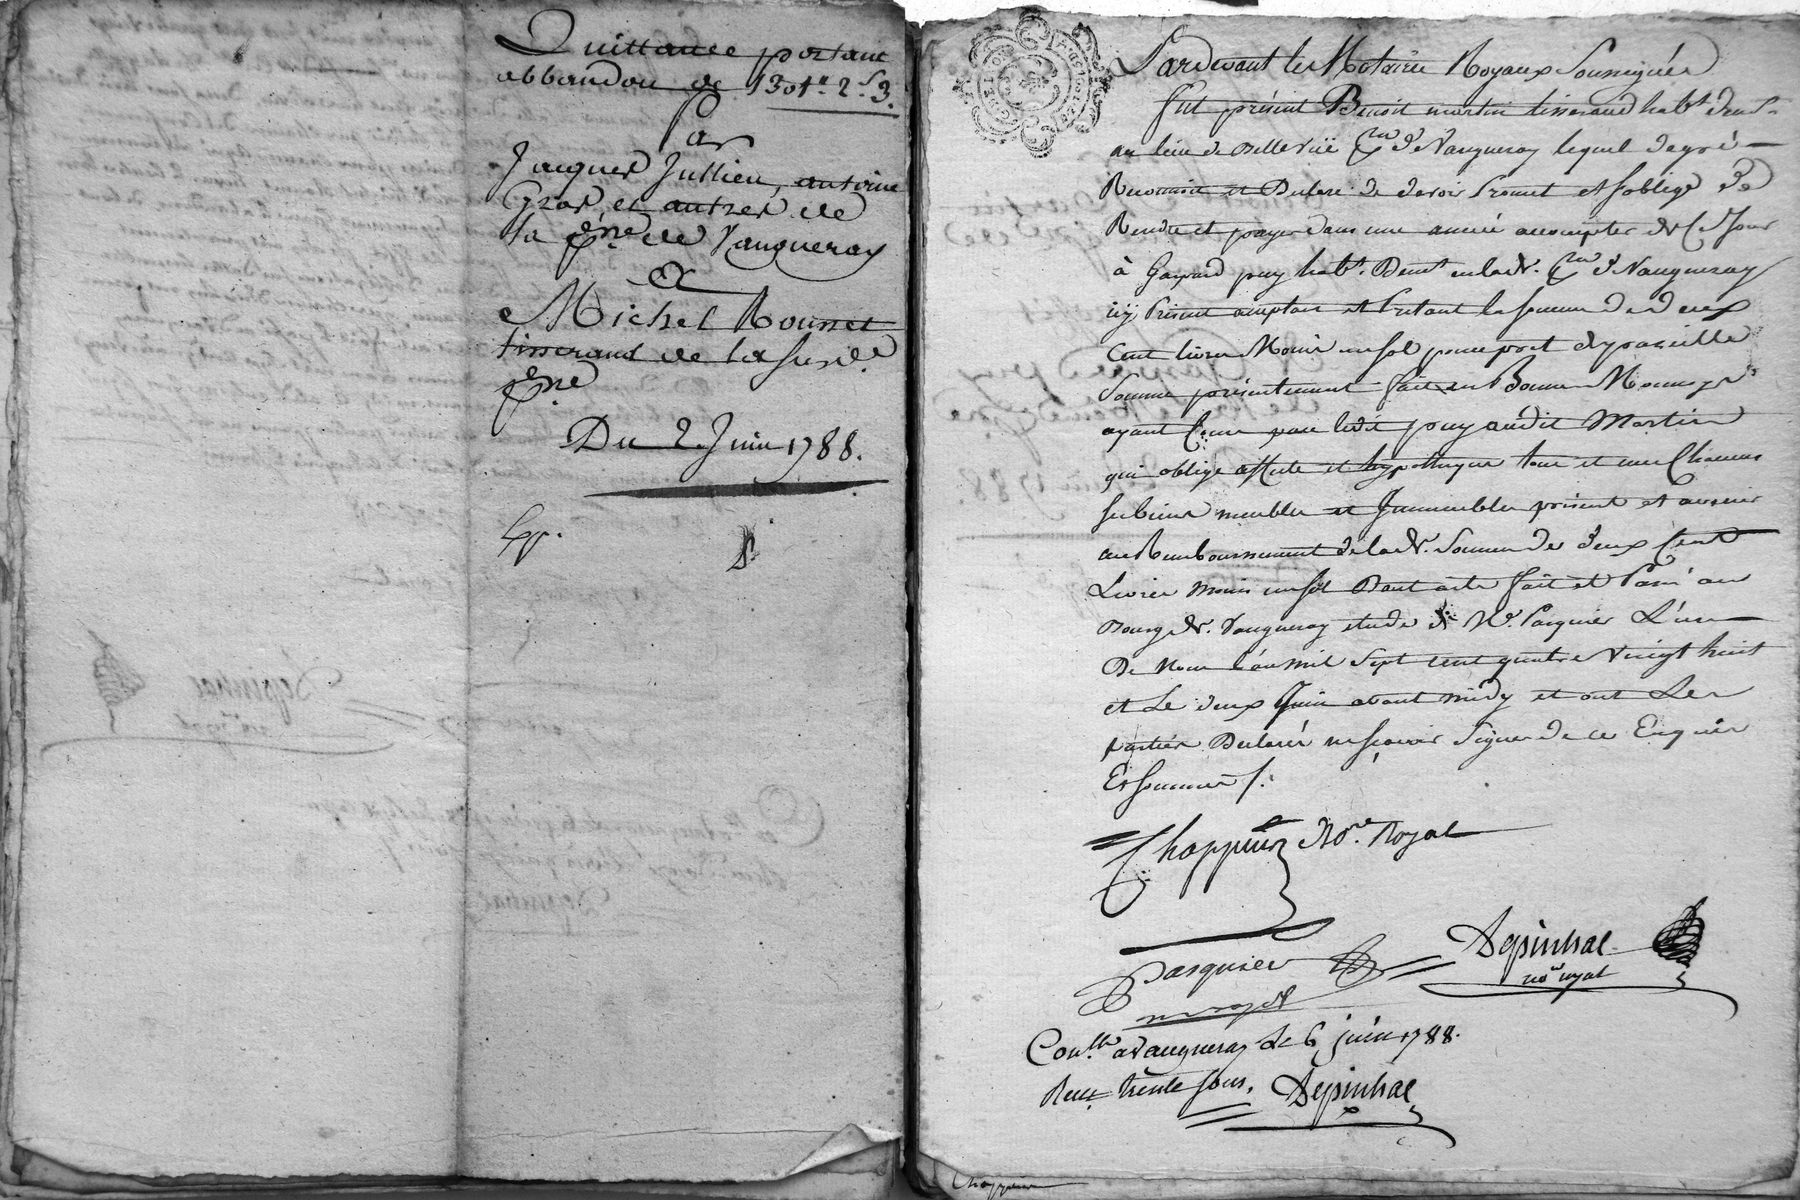 Quittance portant
abbandon de 1301# 2s 3.
Par
Jacques Jullien, antoine
Gras et autres de
la psse de Vaugneray
A
Michel Rousset
tisserand de la susd.
psse
Du 2 Juin 1788.
Pardevant les Notaires Royaux Soussignés
fut présent Benoit martin tisserand habt. demt.
au lieu de Bellevüe psse de Vaugneray lequel de gré
Reconnoit et Declare de devoir Promet et s'oblige de
Rendre et payer dans une année a compter de Ce Jour
à Gaspard puy habt. Demt. en lad. psse de Vaugneray
icy Présent acceptant et la somme de deux
Cent livres Moins un sol pour pret de pareille
Somme présentement fait en Bonnes Monnoyes
ayant Cours par ledit puy audit Martin
qui oblige affecte et hypothèque tous et uns Chacuns
ses biens meubles et Immeubles présent et avenir
au Remboursement de lad. Somme de deux Cent
Livres moins un sol Dont acte fait et Passé au
Bourg de Vaugneray etude de Me. Pasquier L'un
De Nous l'an mil Sept cent quatre vingt huit
et Le deux Juin avant midy et ont Les
parties Declaré ne sçavoir Signer de ce Enquis
Et sommés /.
Chappuis No.re Royal
Depinhac
no.re royal
Pasquier
n. royal
Con.llé a Vaugneray le 6 juin 1788.
Reçu trente sous. Depinhac
Chappuis